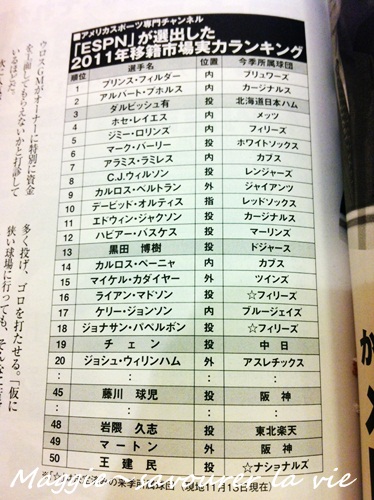 ■アメリカスポーツ専門チャンネル
「ESPN」が選出した
2011年移籍市場実力ランキング
順位 選手名 位置 今季所属球団
1 プリンス・フィルダー 内 ブリュワーズ
2 アルバート・プホルス 内 カージナルス
3 ダルビッシュ有 投 北海道日本ハム
4 ホセ・レイエス 内 メッツ
5 ジミー・ロリンズ 内 フィリーズ
6 マーク・バーリー 投 ホワイトソックス
7 アラミス・ラミレス 内 カブス
8 C.J.ウィルソン 投 レンジャーズ
9 カルロス・ベルトラン 外 ジャイアンツ
10 デービッド・オルティス 指 レッドソックス
11 エドウィン・ジャクソン 投 カージナルス
12 ハビアー・バスケス 投 マーリンズ
13 黒田 博樹 投 ドジャース
14 カルロス・ペーニャ 内 カブス
15 マイケル・カダイヤー 外 ツインズ
16 ライアン・マドソン 投 ☆フィリーズ
17 ケリー・ジョンソン 内 ブルージェイズ
18 ジョナサン・パペルボン 投 ☆フィリーズ
19 チェン 投 中日
20 ジョシュ・ウィリンハム 外 アスレチックス
: : :
45 藤川 球児 投 阪神
: : :
48 岩隈 久志 投 東北楽天
49 マートン 外 阪神
50 王 建 民 投 ☆ナショナルズ
の来季所属球団(現地11月15日現在)
ウロスGMがオーナーに特別に資金
を上積してもらえないかと打診して
いるはずだ。
多く投げ、ゴロを打たせる。「仮に
狭い球場に行っても、そんなに
Maggie savourer la vie